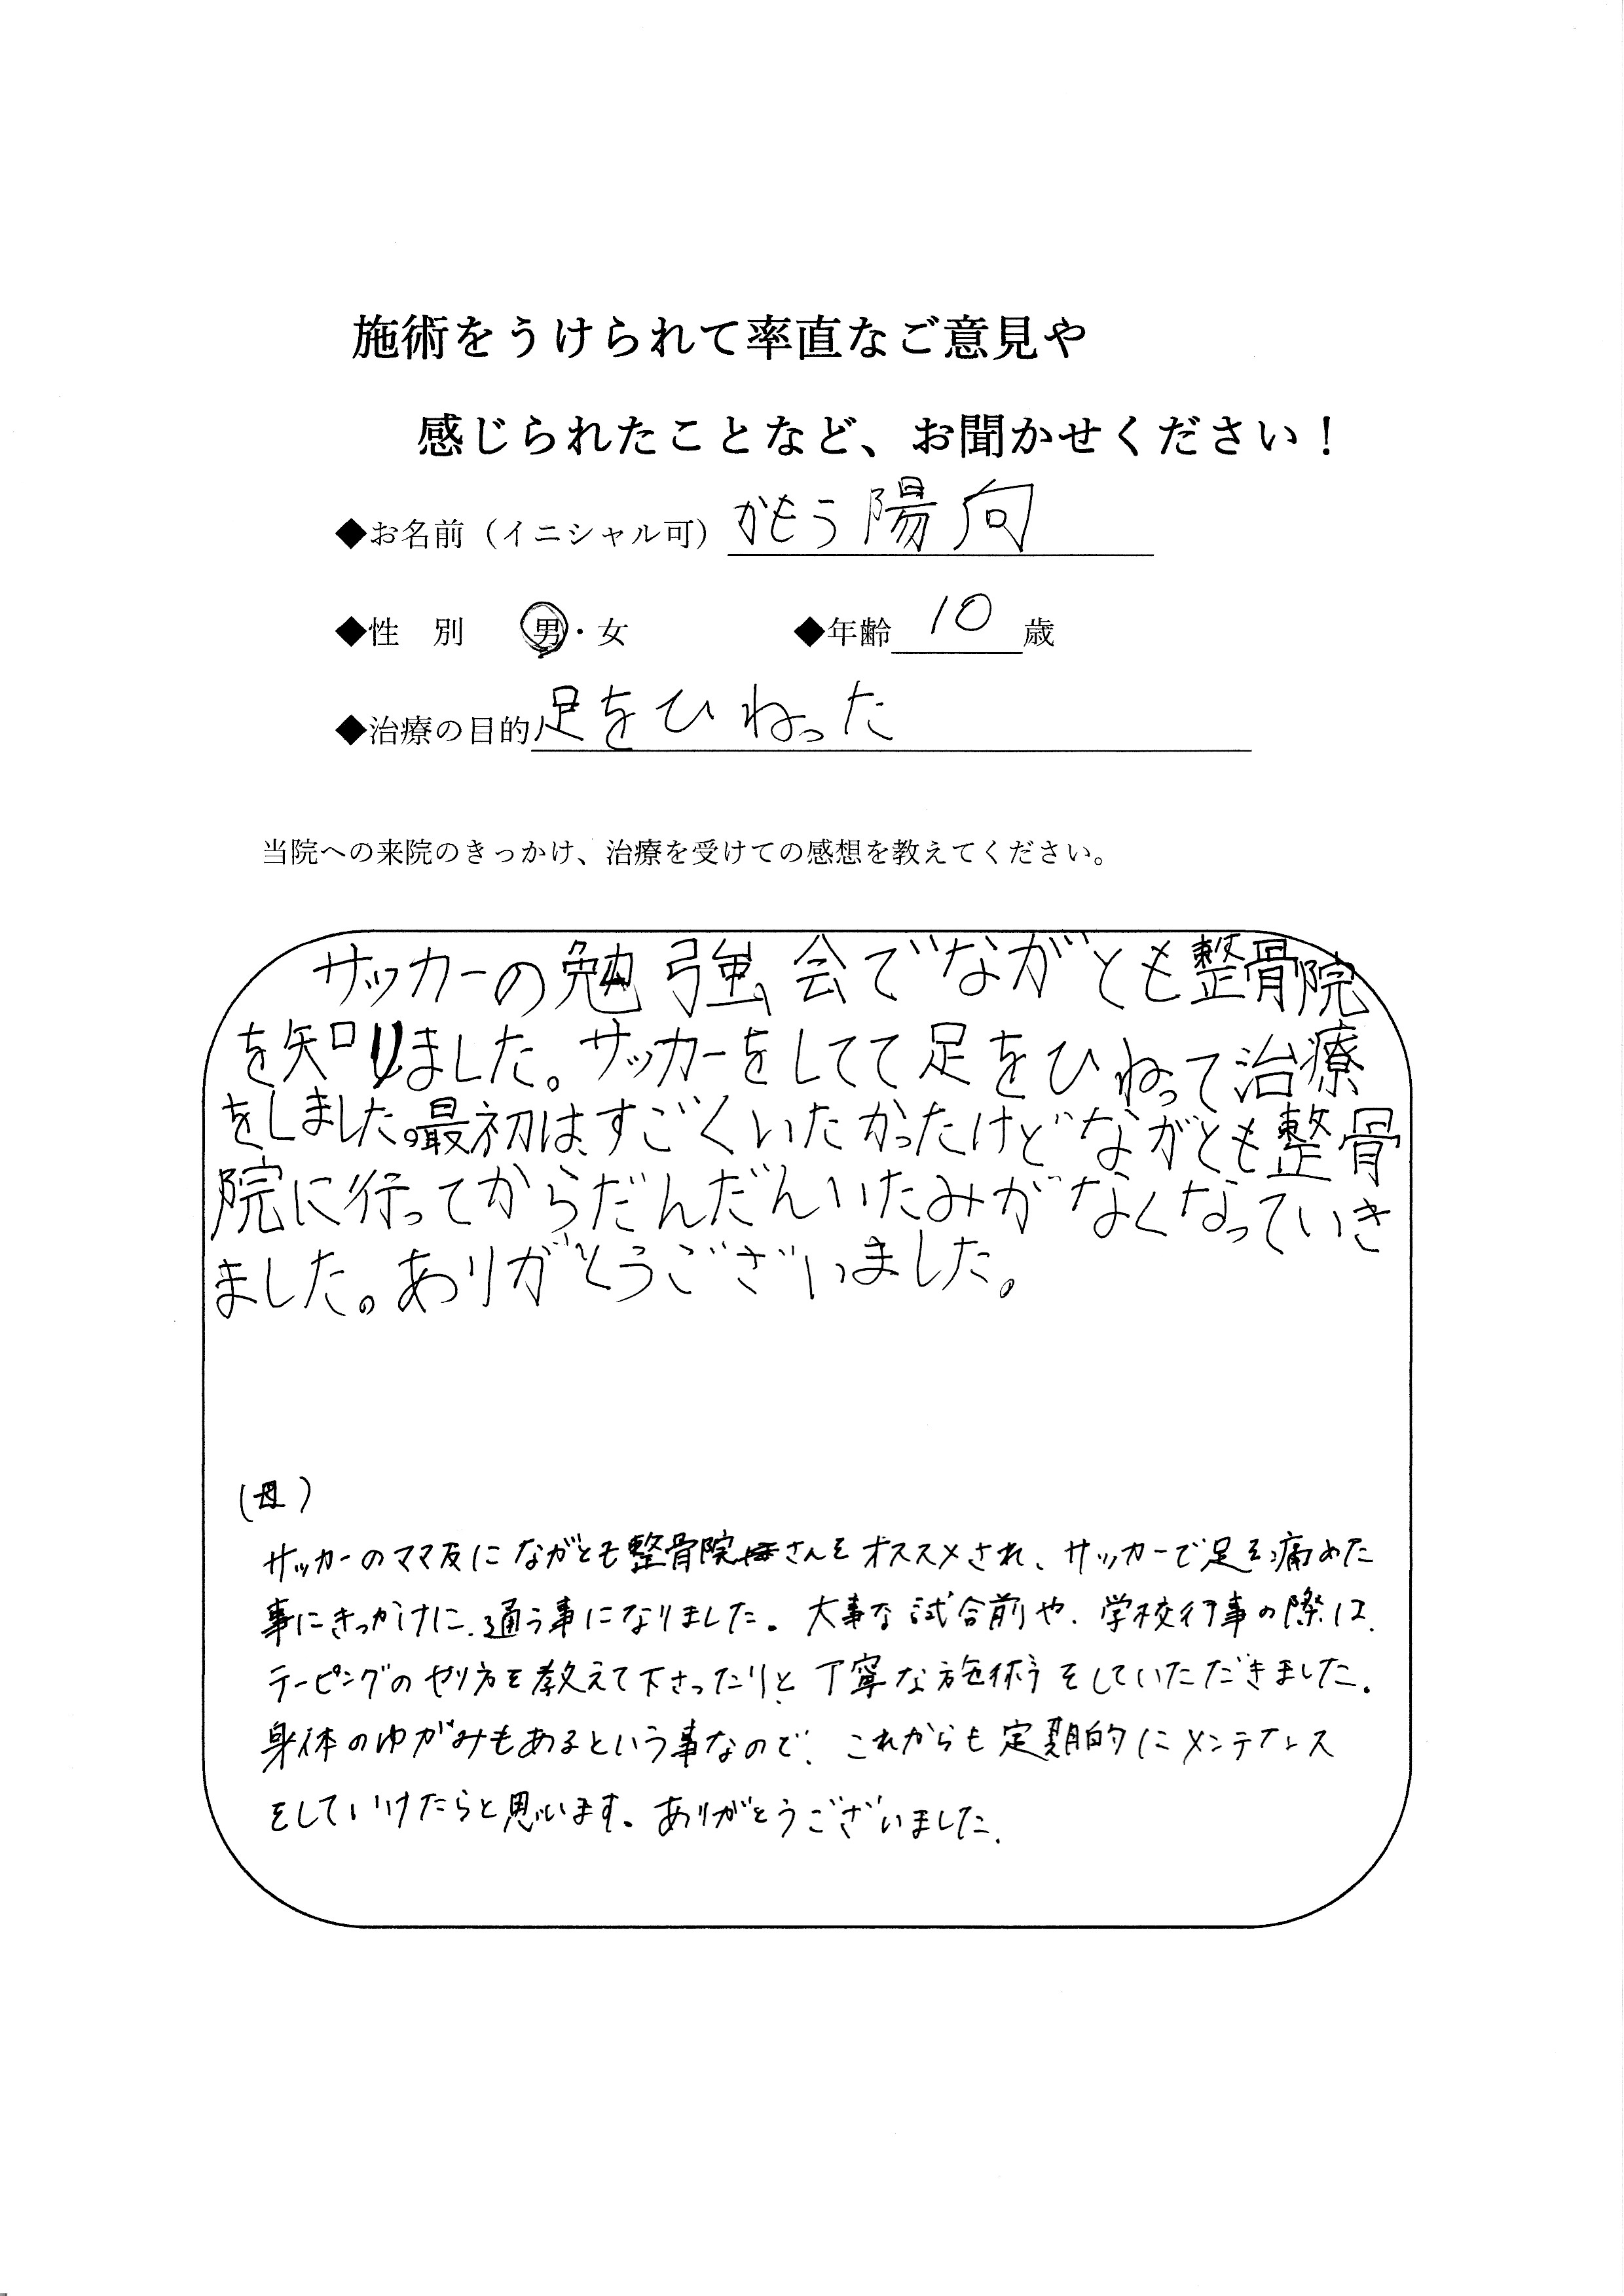 施術をうけられて率直なご意見や
感じられたことなど、お聞かせください！
◆お名前（イニシャル可）かもう陽向
◆性　別　男・女　◆年齢 10 歳
◆治療の目的 足をひねった
当院への来院のきっかけ、治療を受けての感想を教えてください。
サッカーの勉強会でながとも整骨院
を知りました。サッカーをしてて足をひねって治療
をしました。最初は、すごくいたかったけどながとも整骨
院に行ってからだんだんいたみがなくなっていき
ました。ありがとうございました。
（母）
サッカーのママ友にながとも整骨院さんをオススメされ、サッカーで足を痛めた
事にきっかけに、通う事になりました。大事な試合前や、学校行事の際は、
テーピングのやり方を教えて下さったりと、丁寧な施術をしていただきました。
身体のゆがみもあるという事なので、これからも定期的にメンテナンス
をしていけたらと思います。ありがとうございました。